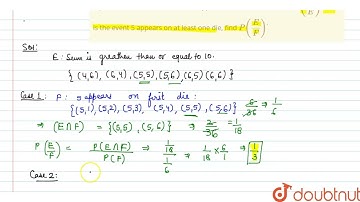 is the event 5 appears on at least one die, find P(E/F).
Sol:
E: Sum is greather then or equal to 10.
{(4,6), (6,4), (5,5), (5,6), (6,5) (6,6)}
Case 1: F: 5 appears on first die:
{(5,1), (5,2), (5,3), (5,4), (5,5), (5,6)} 6/36 ⇒ 1/6
⇒ (E∩F) = {(5,5), (5,6)} ⇒ 2/36 = 1/18
P(E/F) = P(E∩F)/P(F) ⇒ 1/18 / 1/6 ⇒ 1/18 × 6/1 ⇒ 1/3
Case 2:
doubtnut